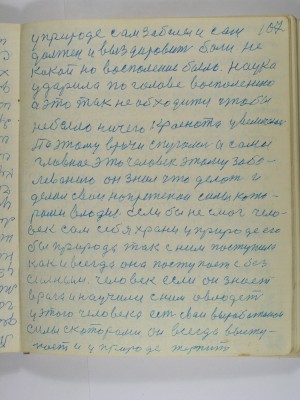 у природе сам заболел и сам 107
должен и выздоровит боли не
какой но восполение было. Наука
ударила по голове восполению
а это так необходимо чтобы
небыло ничего краснота увеличен
Поэтому врачи
главное это человек этому забо-
леванию он знал что делат и
делал свои силы кото-
рами владел. Если бы не смог чело-
век сам себя храни у природе его
бы природа так с ним поступила
как и всегда она поступает с без
силным. человек если он знает
врага и научили с ним овлодет
у этого человека ест свои выработаной
силы скоторами он всегда высту-
пает и у природе